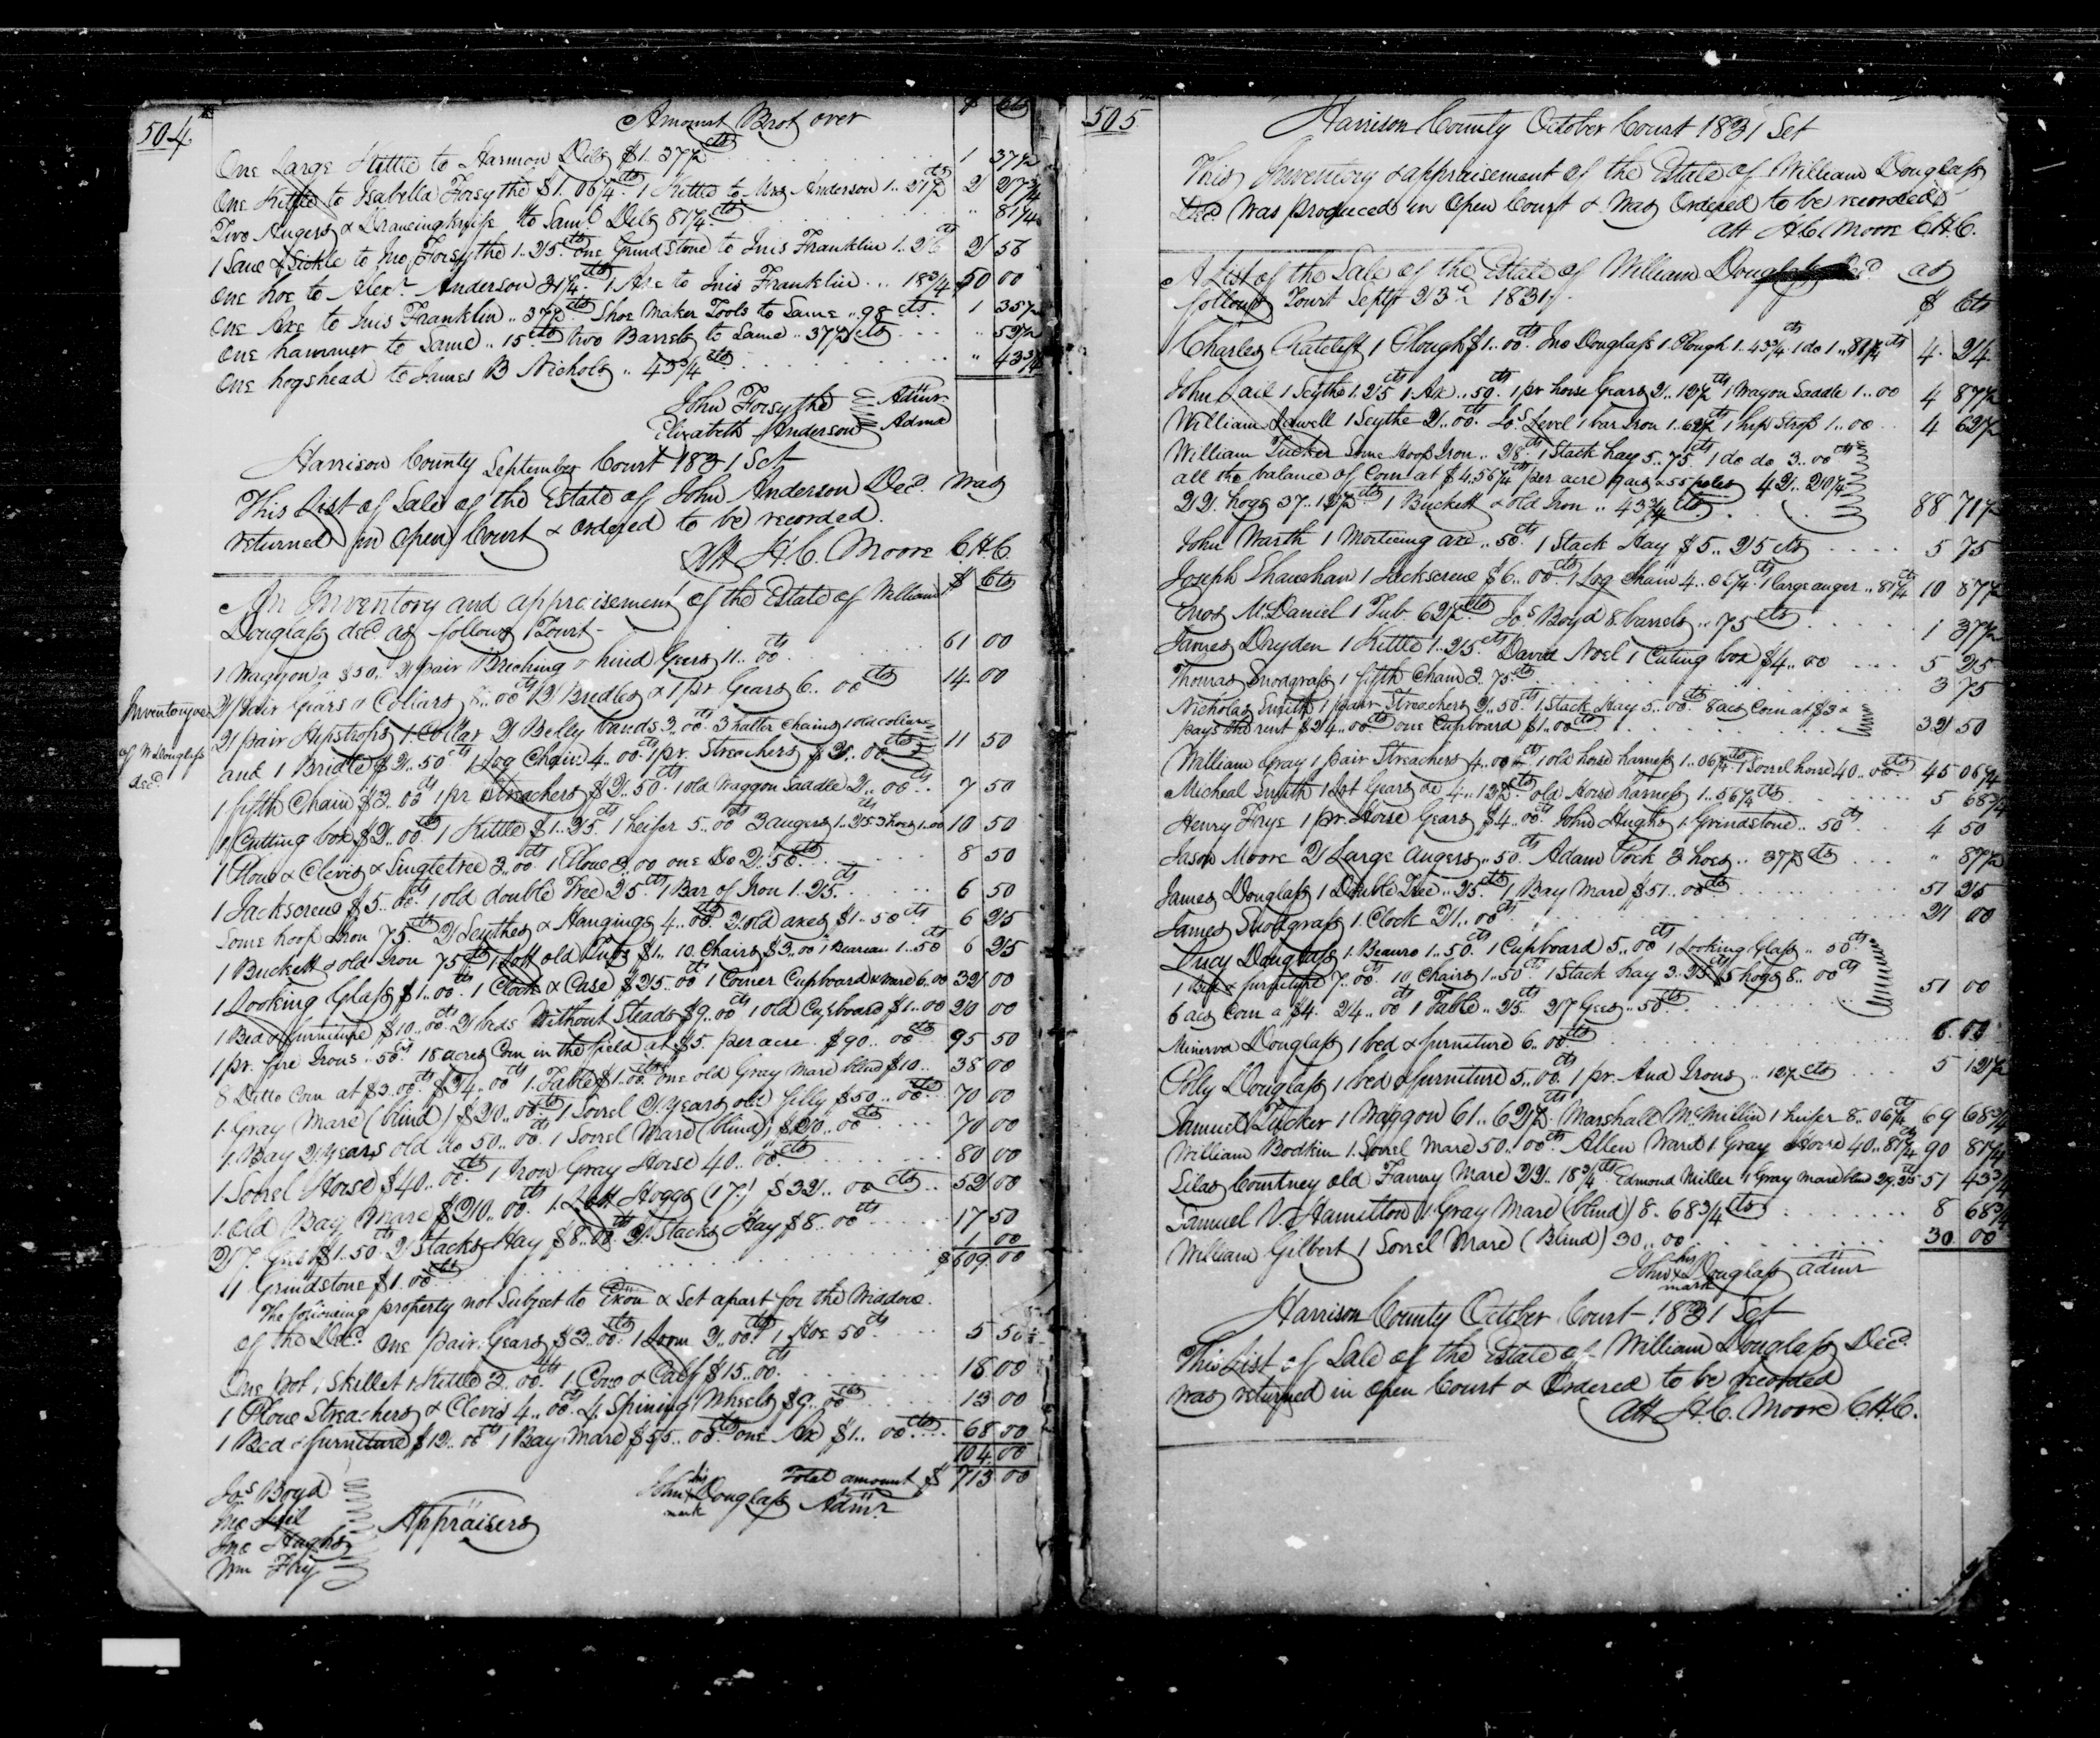 504
Amount Brot over $ Cts
One Large Kettle to Harmon Dils $1.37½ cts 1 37½
One Kettle to Isabella Forsythe $1.06¼ cts 1 Kettle to Mrs Anderson 1..21½ cts 2 27¾
Two Augers & Drawing knife to Saml Dils 81¼ cts .. 81¼
1 Saw & Sickle to Jno Forsythe 1..25 cts One Grind Stone to Inis Franklin 1..26 ct 2 56
One hoe to Alexr Anderson 31¼ cts 1 Axe to Inis Franklin .. 18¾ 50 00
One Axe to Inis Franklin .. 37½ cts Shoe Maker Tools to Same .. 98 cts. 1 35½
One hammer to Same .. 15 cts two Barrels to Same .. 37½ cts .. 52½
One hogshead to James B Nichols .. 43¾ cts .. 43¾
John Forsythe Admr
Elizabeth Anderson Admx
Harrison County September Court 1831 Sct
This List of Sale of the Estate of John Anderson Decd. was
returned in open Court & ordered to be recorded.
Att H. C. Moore C.H.C.
An Inventory and appraisement of the Estate of William $ Cts
Douglass decd as follows Towit
1 Waggon a $50.. 2 pair Briching & hind Gears 11..00 cts 61 00
2 pair Gears & Collars 8..00 cts 2 Bridles & 1 pr Gears 6..00 cts 14 00
Inventory &c
of W Douglass
decd.
2 pair Hipstrops 1 Collar 2 Belly bands 3..00 cts 3 halter chains 1 old collar
and 1 Bridle $2..50 cts 1 Log Chain 4..00 cts 1 pr. Streachers $2..00 cts 11 50
1 fifth Chain $3..00 cts 1 pr Streachers $2..50 cts 1 old Waggon Saddle 2..00 cts 7 50
1 Cutting box $2..00 cts 1 Kettle $1..25 cts 1 heifer 5..00 cts 3 augers 1..25 3 hoes 1..00 10 50
1 Plow & Clevis & Singletree 3..00 cts 1 Plow 3..00 one Do 2..50 cts 8 50
1 Jackscrew $5..00 cts 1 old double Tree 25 cts 1 Bar of Iron 1..25 cts 6 50
Some hoop Iron 75 cts 2 Scythes & Hangings 4..00 cts 2 old axes $1..50 cts 6 25
1 Buckett & old Iron 75 cts 1 Lott old Tubs $1.. 10 Chairs $3..00 1 Beareau 1..50 cts 6 25
1 Looking Glass $1..00 cts 1 Clock & Case $25..00 cts 1 Corner Cupboard & ware 6..00 32 00
1 Bed & furniture $10..00 cts 2 beds Without Steads $9..00 cts 1 old Cupboard $1..00 20 00
1 pr. fire Irons .. 50 cts 18 acres Corn in the field at $5. per acre. $90..00 cts 95 50
8 Ditto Corn at $3..00 cts $24..00 cts 1 Table $1..00 cts one old Gray Mare blind $10.. 38 00
1 Gray Mare (blind) $20..00 cts 1 Sorrel 2 years old filly $50..00 cts 70 00
1 Bay 2 years old do 50..00 cts 1 Sorrel Mare (blind) $20..00 cts 70 00
1 Sorrel Horse $40..00 cts 1 Iron Gray Horse 40..00 cts 80 00
1 Old Bay Mare $20..00 cts 1 Lott Hoggs (17) $32..00 cts 52 00
27 Gees $1.50 cts 2 Stacks Hay $8..00 cts 2 Stacks Hay $8..00 cts 17 50
1 Grindstone $1..00 cts 1 00
$609 00
The following property not Subject to Exōn & Set apart for the Widow
of the Decd. One pair Gears $3..00 cts 1 Loom 2..00 cts 1 Hoe 50 cts 5 50
One Pot 1 Skillet 1 Kettle 3..00 cts 1 Cow & Calf $15..00 cts 18 00
1 Plow Streachers & Clevis 4..00 cts 4 Spining Wheels $9..00 cts 13 00
1 Bed & furniture $12..00 cts 1 Bay Mare $55..00 cts one Ax $1..00 cts 68 00
104 00
Total amount $ 713 00
John his X mark Douglass Admr
Jos Boyd
Jno Lail
Jno Hughs
Wm Fry
Appraisers
505
Harrison County October Court 1831 Sct
This Inventory & appraisement of the Estate of William Douglass
Decd Was produced in Open Court & Was Ordered to be recorded
att H C Moore C.H.C.
A List of the Sale of the Estate of William Douglass Decd as
follows Towit Septr 23rd 1831 $ Cts
Charles Ratcliff 1 Plough $1..00 cts Jno Douglass 1 Plough 1..43¾ cts 1 do 1..81¼ cts 4 24
John Lail 1 Scythe 1.25 cts 1 Ax ..50 cts 1 pr horse Gears 2..12½ cts 1 Wagon Saddle 1..00 4 87½
William Adwell 1 Scythe 2..00 cts Jo.s Level 1 bar Iron 1..62½ cts 1 hip Strop 1..00 4 62½
William Tucker Some Hoop Iron .. 28 cts 1 Stack hay 5..75 cts 1 do do 3..00 cts
all the balance of Corn at $4.56¼ cts per acre 9 acs & 55 poles 42..20¼
22 hogs 37..12½ cts 1 Buckett & old Iron .. 43¾ cts 88 71½
John Warth 1 Morticing axe .. 50 cts 1 Stack Hay $5..25 cts 5 75
Joseph Shawhan 1 Jackscrew $6..00 cts 1 Log Chain 4..06¼ cts 1 large auger .. 81¼ cts 10 87½
Enos McDaniel 1 Tub 62½ cts Jos Boyd 8 barrels .. 75 cts 1 37½
James Dryden 1 Kettle 1..25 cts David Noel 1 Cuting box $4..00 5 25
Thomas Snodgrass 1 fifth Chain 3..75 cts 3 75
Nicholas Smith 1 pair Streachers 2..50 cts 1 Stack Hay 5..00 cts 8 acs Corn at $3 &
pays the rent $24..00 cts one Cupboard $1..00 cts 32 50
William Gray 1 pair Streachers 4..00 cts 1 old horse harness 1..06¼ cts 1 Sorrel horse 40..00 cts 45 06¼
Micheal Smith 1 Lot Gears &c 4..12½ cts old Horse harness 1..56¼ cts 5 68¾
Henry Frye 1 pr. Horse Gears $4..00 cts John Hughs 1 Grindstone .. 50 cts 4 50
Jason Moore 2 Large augers ..50 cts Adam Pock 3 hoes .. 37½ cts .. 87½
James Douglass 1 Double Tree .. 25 cts 1 Bay Mare $51..00 cts 51 25
James Snodgrass 1 Clock 21..00 cts 21 00
Lucy Douglass 1 Beauro 1..50 cts 1 Cupboard 5..00 cts 1 Looking Glass .. 50 cts
1 Bed & furniture 7..00 cts 10 Chairs 1..50 cts 1 Stack hay 3..25 cts 5 hogs 8..00 cts
6 acs Corn a $4. 24..00 cts 1 Table .. 25 cts 27 Gees .. 50 cts 51 00
Minerva Douglass 1 bed & furniture 6..00 cts 6 00
Polly Douglass 1 bed & furniture 5..00 cts 1 pr. And Irons .. 12½ cts 5 12½
Samuel Tucker 1 Waggon 61..62½ cts Marshall McMillin 1 heifer 8..06¼ cts 69 68¾
William Bodkin 1 Sorrel Mare 50..00 cts Allen Ward 1 Gray Horse 40..81¼ cts 90 81¼
Silas Courtney old Fanny Mare 22..18¾ cts Edmond Miller 1 Gray Mare blind 29.25 cts 51 43¾
Samuel V. Hamilton 1 Gray Mare (blind) 8..68¾ cts 8 68¾
William Gilbert 1 Sorrel Mare (Blind) 30..00 30 00
John his X mark Douglass admr
Harrison County October Court 1831 Sct
This List of Sale of the Estate of William Douglass Decd
was returned in open Court & Ordered to be recorded
Att H. C. Moore C.H.C.